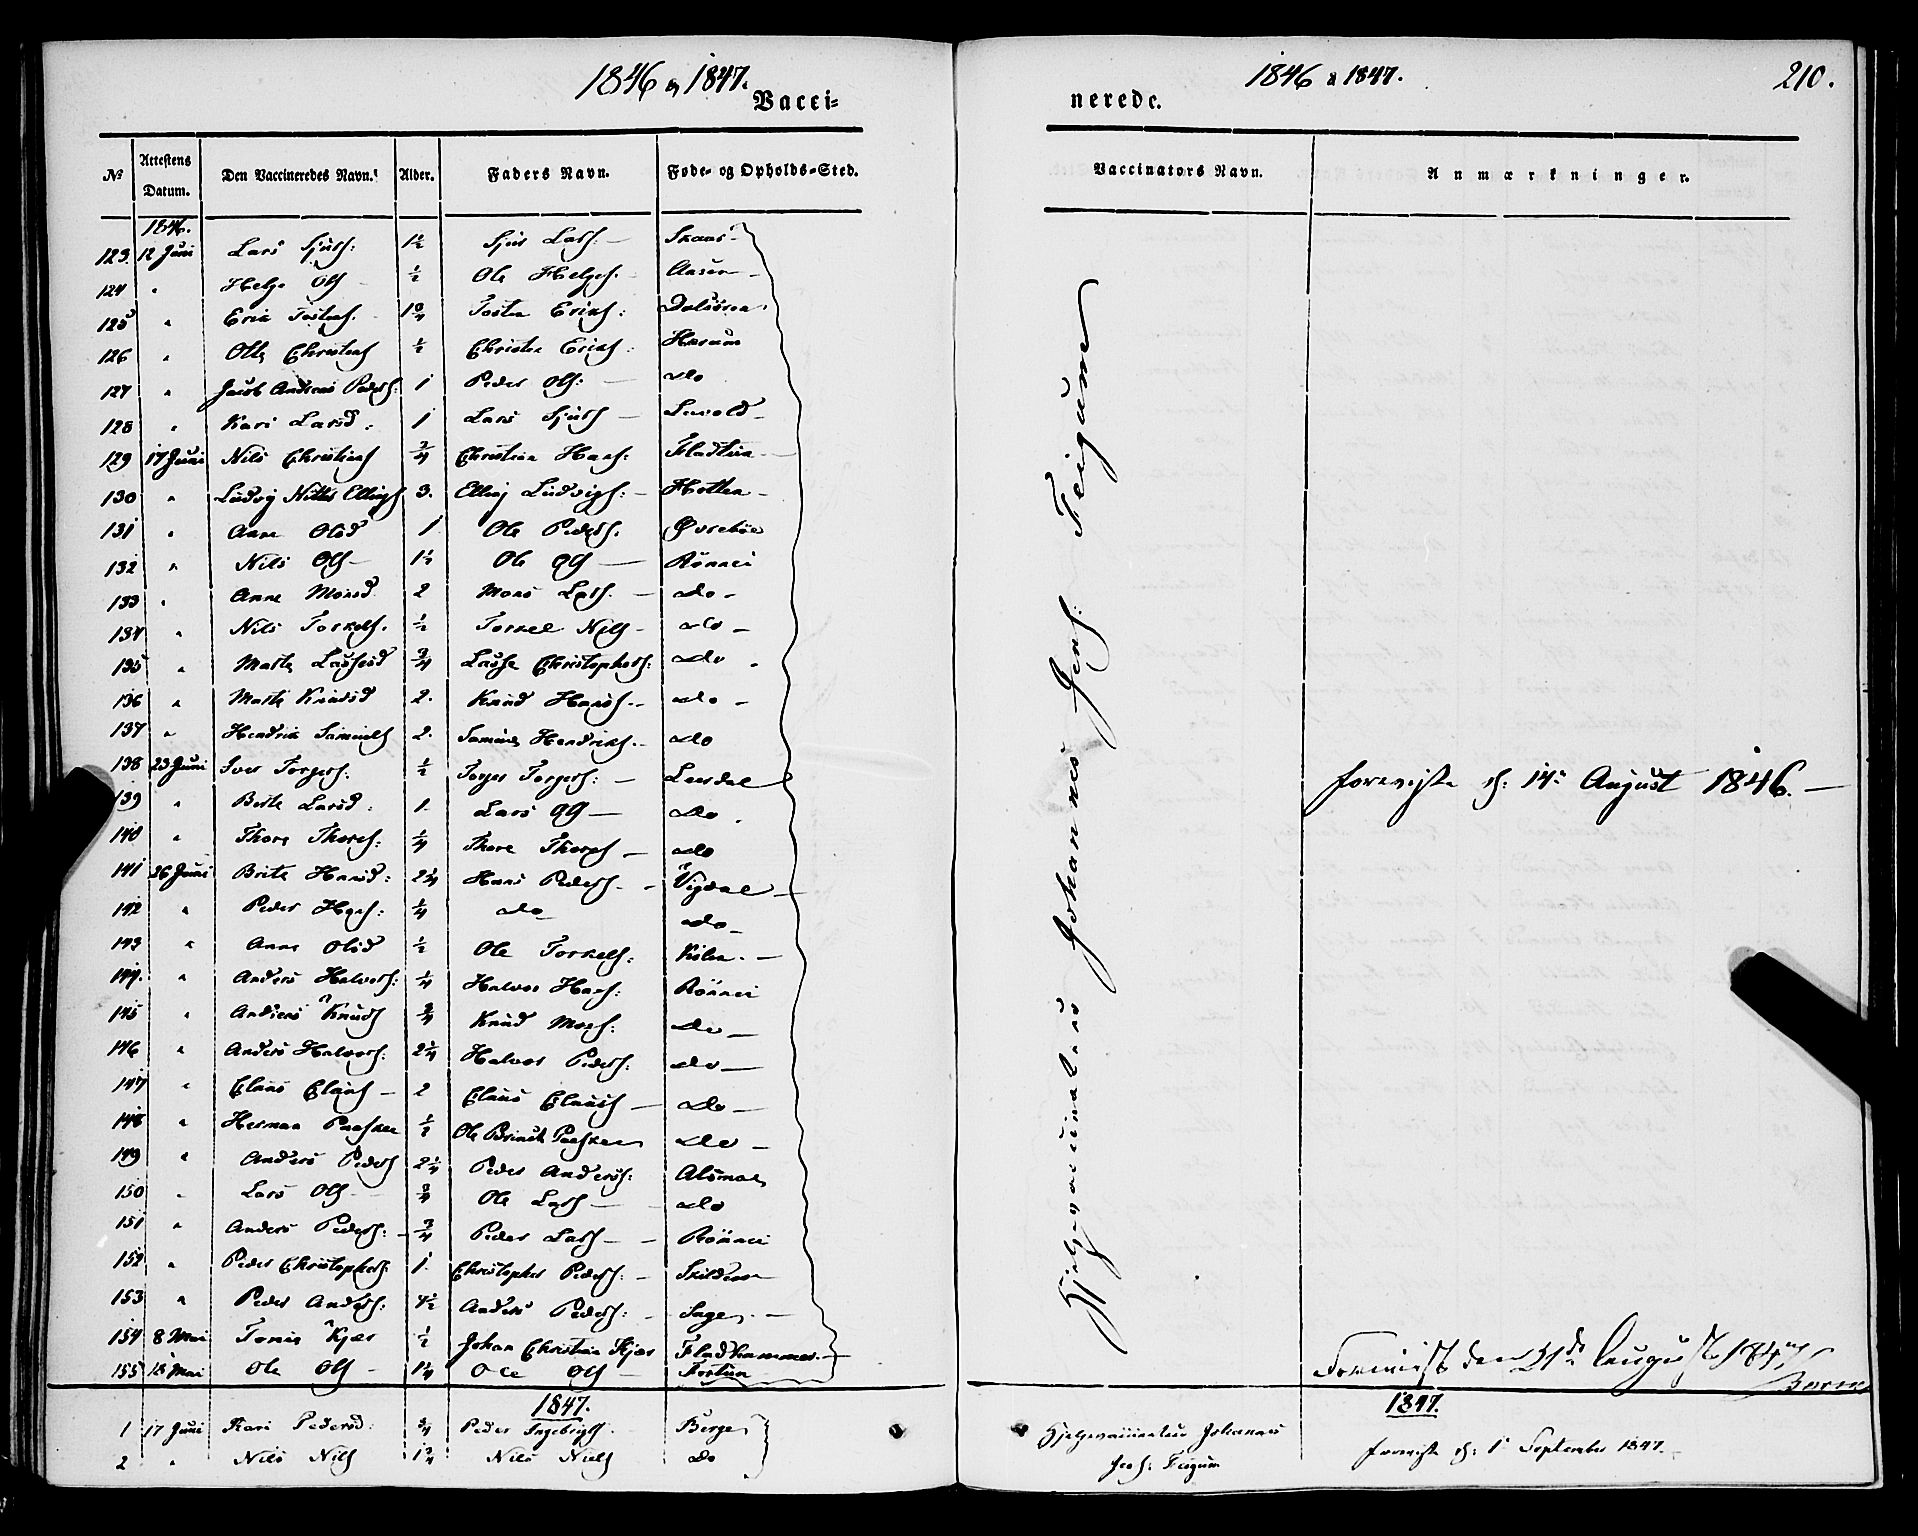 1846 og 1847.
Vacci-
№ Attestens Datum. Den Vaccineredes Navn. Alder. Faders Navn. Føde- og Opholds-Sted.
1846.
123. 12 Juni Lars Sjurs: 1½ Sjur Lars: — Skaar
124 " Helge Ols ½ Ole Helges. Aasen
125 " Erik Tostens. 1¾ Tosten Eriks: Dalsøren
126 " Otte Christens ½ Christen Eriks: Harum
127 " Jacob Andreas Peders: 1 Peder Ols: — do
128 " Kari Larsd: 1 Lars Sjurs — Luvold
129 17 Juni Nils Christians ¾ Christian Hans: Fladtun
130 " Ludvig Nitter Ellings 3. Elling Ludvigs: — Hotten
131 " Anne Olsd 1 Ole Peders. Øvrebøe
132 " Nils Ols — 1½ Ole Ols — Rønnei
133 " Anne Monsd 2 Mons Lars. — do
134 " Nils Torkels. ½ Torkel Nils — do
135 " Marte Lassesd ¾ Lasse Christophers: do
136 " Marte Knudsd 2. Knud Hans. — do
137 " Hendrik Samuels 2. Samuel Hendriks. — do
138 23 Juni Iver Torgers: ½ Torger Torgers: — Leerdal
139 " Berte Larsd: 1. Lars Ols — Do
140 " Thore Thores: ¼ Thore Thores — do
141 26 Juni Brite Hansd: 2¼ Hans Peders — Vigdal
142 " Peder Hans: ¼ do do
143 " Anne Olsd ½ Ole Torkels: Kilen
144. " Anders Halvors: ¼ Halvor Hans: Rønnei
145 " Andreas Knuds ¾ Knud Mons: Do
146 " Anders Halvors: 2¼ Halvor Peders: do
147 " Claus Claus — 2 Claus Claus — Do
148 " Herman Paaske ½ Ole Brinch Paaske Do
149 " Anders Peders 2¼ Peder Anders: Alsmoe
150 " Lars Ols ¾ Ole Lars — do
151 " Anders Peders: ¾ Peder Lars — Rønnei
152 " Peder Christophers: 1. Christopher Peders: — Skilden
153 " Peder Anders: 4½ Anders Peders:
154 8 Mai Kjær ½ Johan Christian Kjær Fladhammer
155 18 Mai Ole Ols — 1¼ Ole Ols — Fortun
1847.
1 17 Juni Kari Pedersd: ¾ Peder Ingebrigts. Berge
2 " Nils Nils 1¾ Nils Niels Do
1846 & 1847.
210.
nerede.
Vaccinators Navn. Anmærkninger.
Hjelpevaccinateur Johannes Jens: Feigum
foreviist d: 14. August 1846. —
Foreviist den 31de August 1847
1847.
Hjelpevaccinateur Johannes
Jens: Feigum
foreviist d: 1. September 1847.